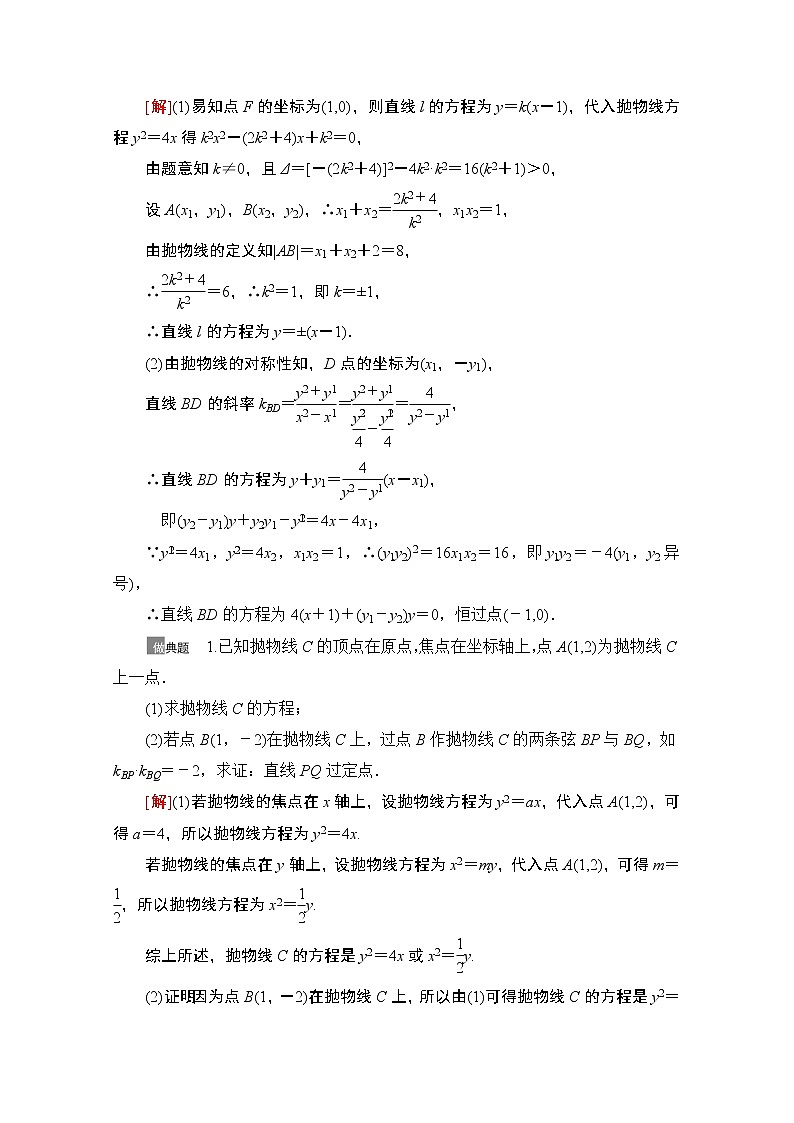 [解](1)易知点 F 的坐标为(1,0)，则直线 l 的方程为 y＝k(x－1)，代入抛物线方
程 y²＝4x 得 k²x²－(2k²＋4)x＋k²＝0，
由题意知 k≠0，且 Δ＝[－(2k²＋4)]²－4k²·k²＝16(k²＋1)＞0，
设 A(x₁，y₁)，B(x₂，y₂)，∴x₁＋x₂＝(2k²＋4)/k²，x₁x₂＝1，
由抛物线的定义知|AB|＝x₁＋x₂＋2＝8，
∴(2k²＋4)/k²＝6，∴k²＝1，即 k＝±1，
∴直线 l 的方程为 y＝±(x－1)．
(2)由抛物线的对称性知，D 点的坐标为(x₁，－y₁)，
直线 BD 的斜率 k_BD＝(y2＋y1)/(x2－x1)＝(y2＋y1)/(y²₂/4－y²₁/4)＝4/(y2－y1)，
∴直线 BD 的方程为 y＋y₁＝4/(y2－y1)(x－x₁)，
即(y₂－y₁)y＋y₂y₁－y²₁＝4x－4x₁，
∵y²₁＝4x₁，y²₂＝4x₂，x₁x₂＝1，∴(y₁y₂)²＝16x₁x₂＝16，即 y₁y₂＝－4(y₁，y₂异
号)，
∴直线 BD 的方程为 4(x＋1)＋(y₁－y₂)y＝0，恒过点(－1,0)．
做典题 1.已知抛物线 C 的顶点在原点，焦点在坐标轴上，点 A(1,2)为抛物线 C
上一点．
(1)求抛物线 C 的方程；
(2)若点 B(1，－2)在抛物线 C 上，过点 B 作抛物线 C 的两条弦 BP 与 BQ，如
k_BP·k_BQ＝－2，求证：直线 PQ 过定点．
[解](1)若抛物线的焦点在 x 轴上，设抛物线方程为 y²＝ax，代入点 A(1,2)，可
得 a＝4，所以抛物线方程为 y²＝4x.
若抛物线的焦点在 y 轴上，设抛物线方程为 x²＝my，代入点 A(1,2)，可得 m＝
1/2，所以抛物线方程为 x²＝1/2y.
综上所述，抛物线 C 的方程是 y²＝4x 或 x²＝1/2y.
(2)证明因为点 B(1，－2)在抛物线 C 上，所以由(1)可得抛物线 C 的方程是 y²＝